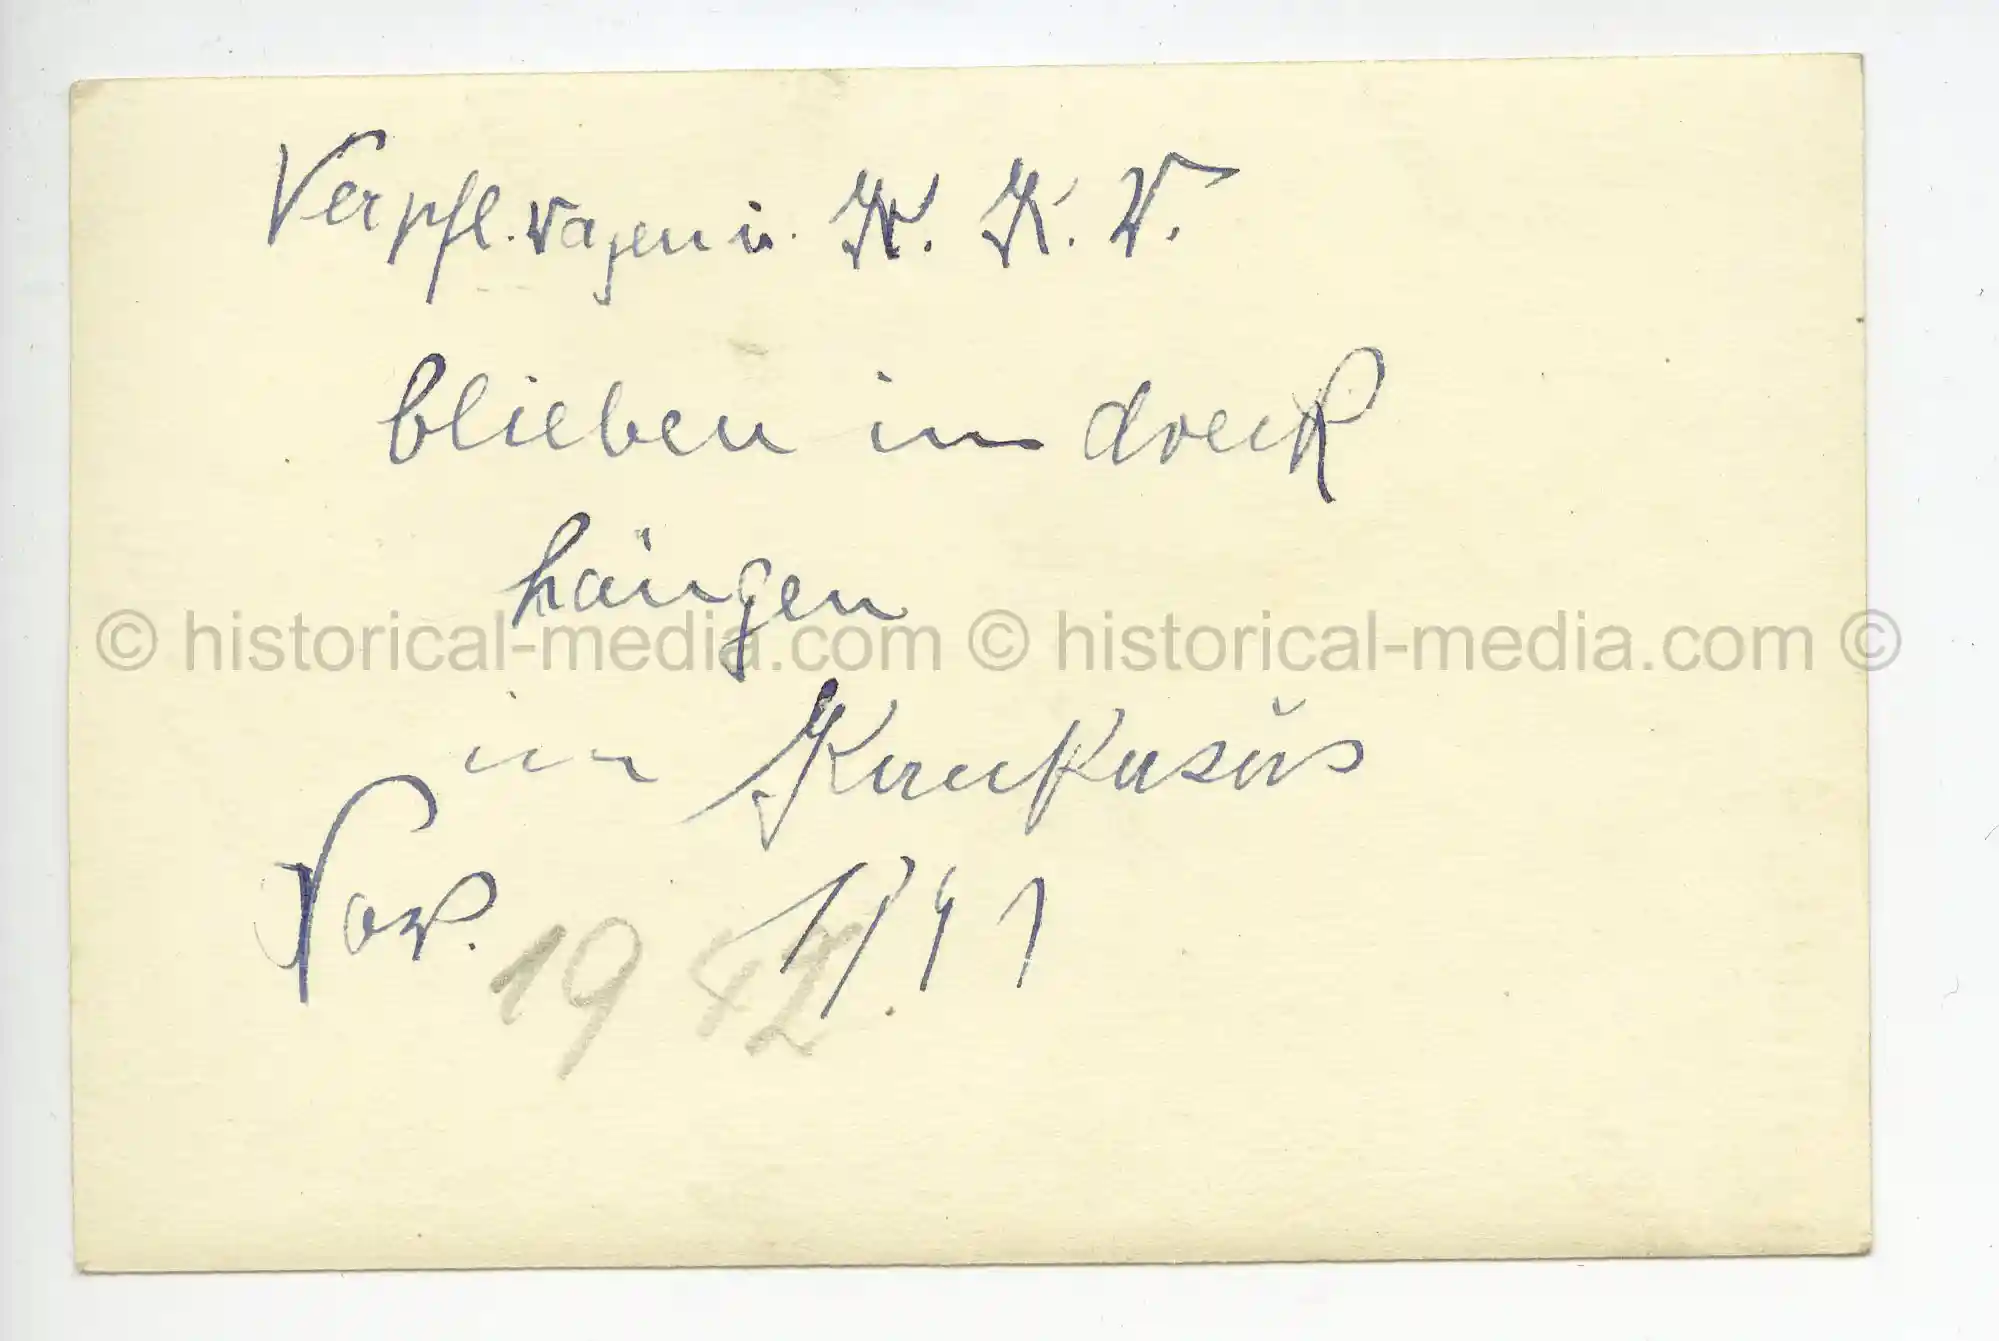 Verpfl. wagen u. K. K. W.
blieben im dreck
hängen
© historical-media.com © historical-media.com ©
im Kaukasŭs
Nov. 1941
1942